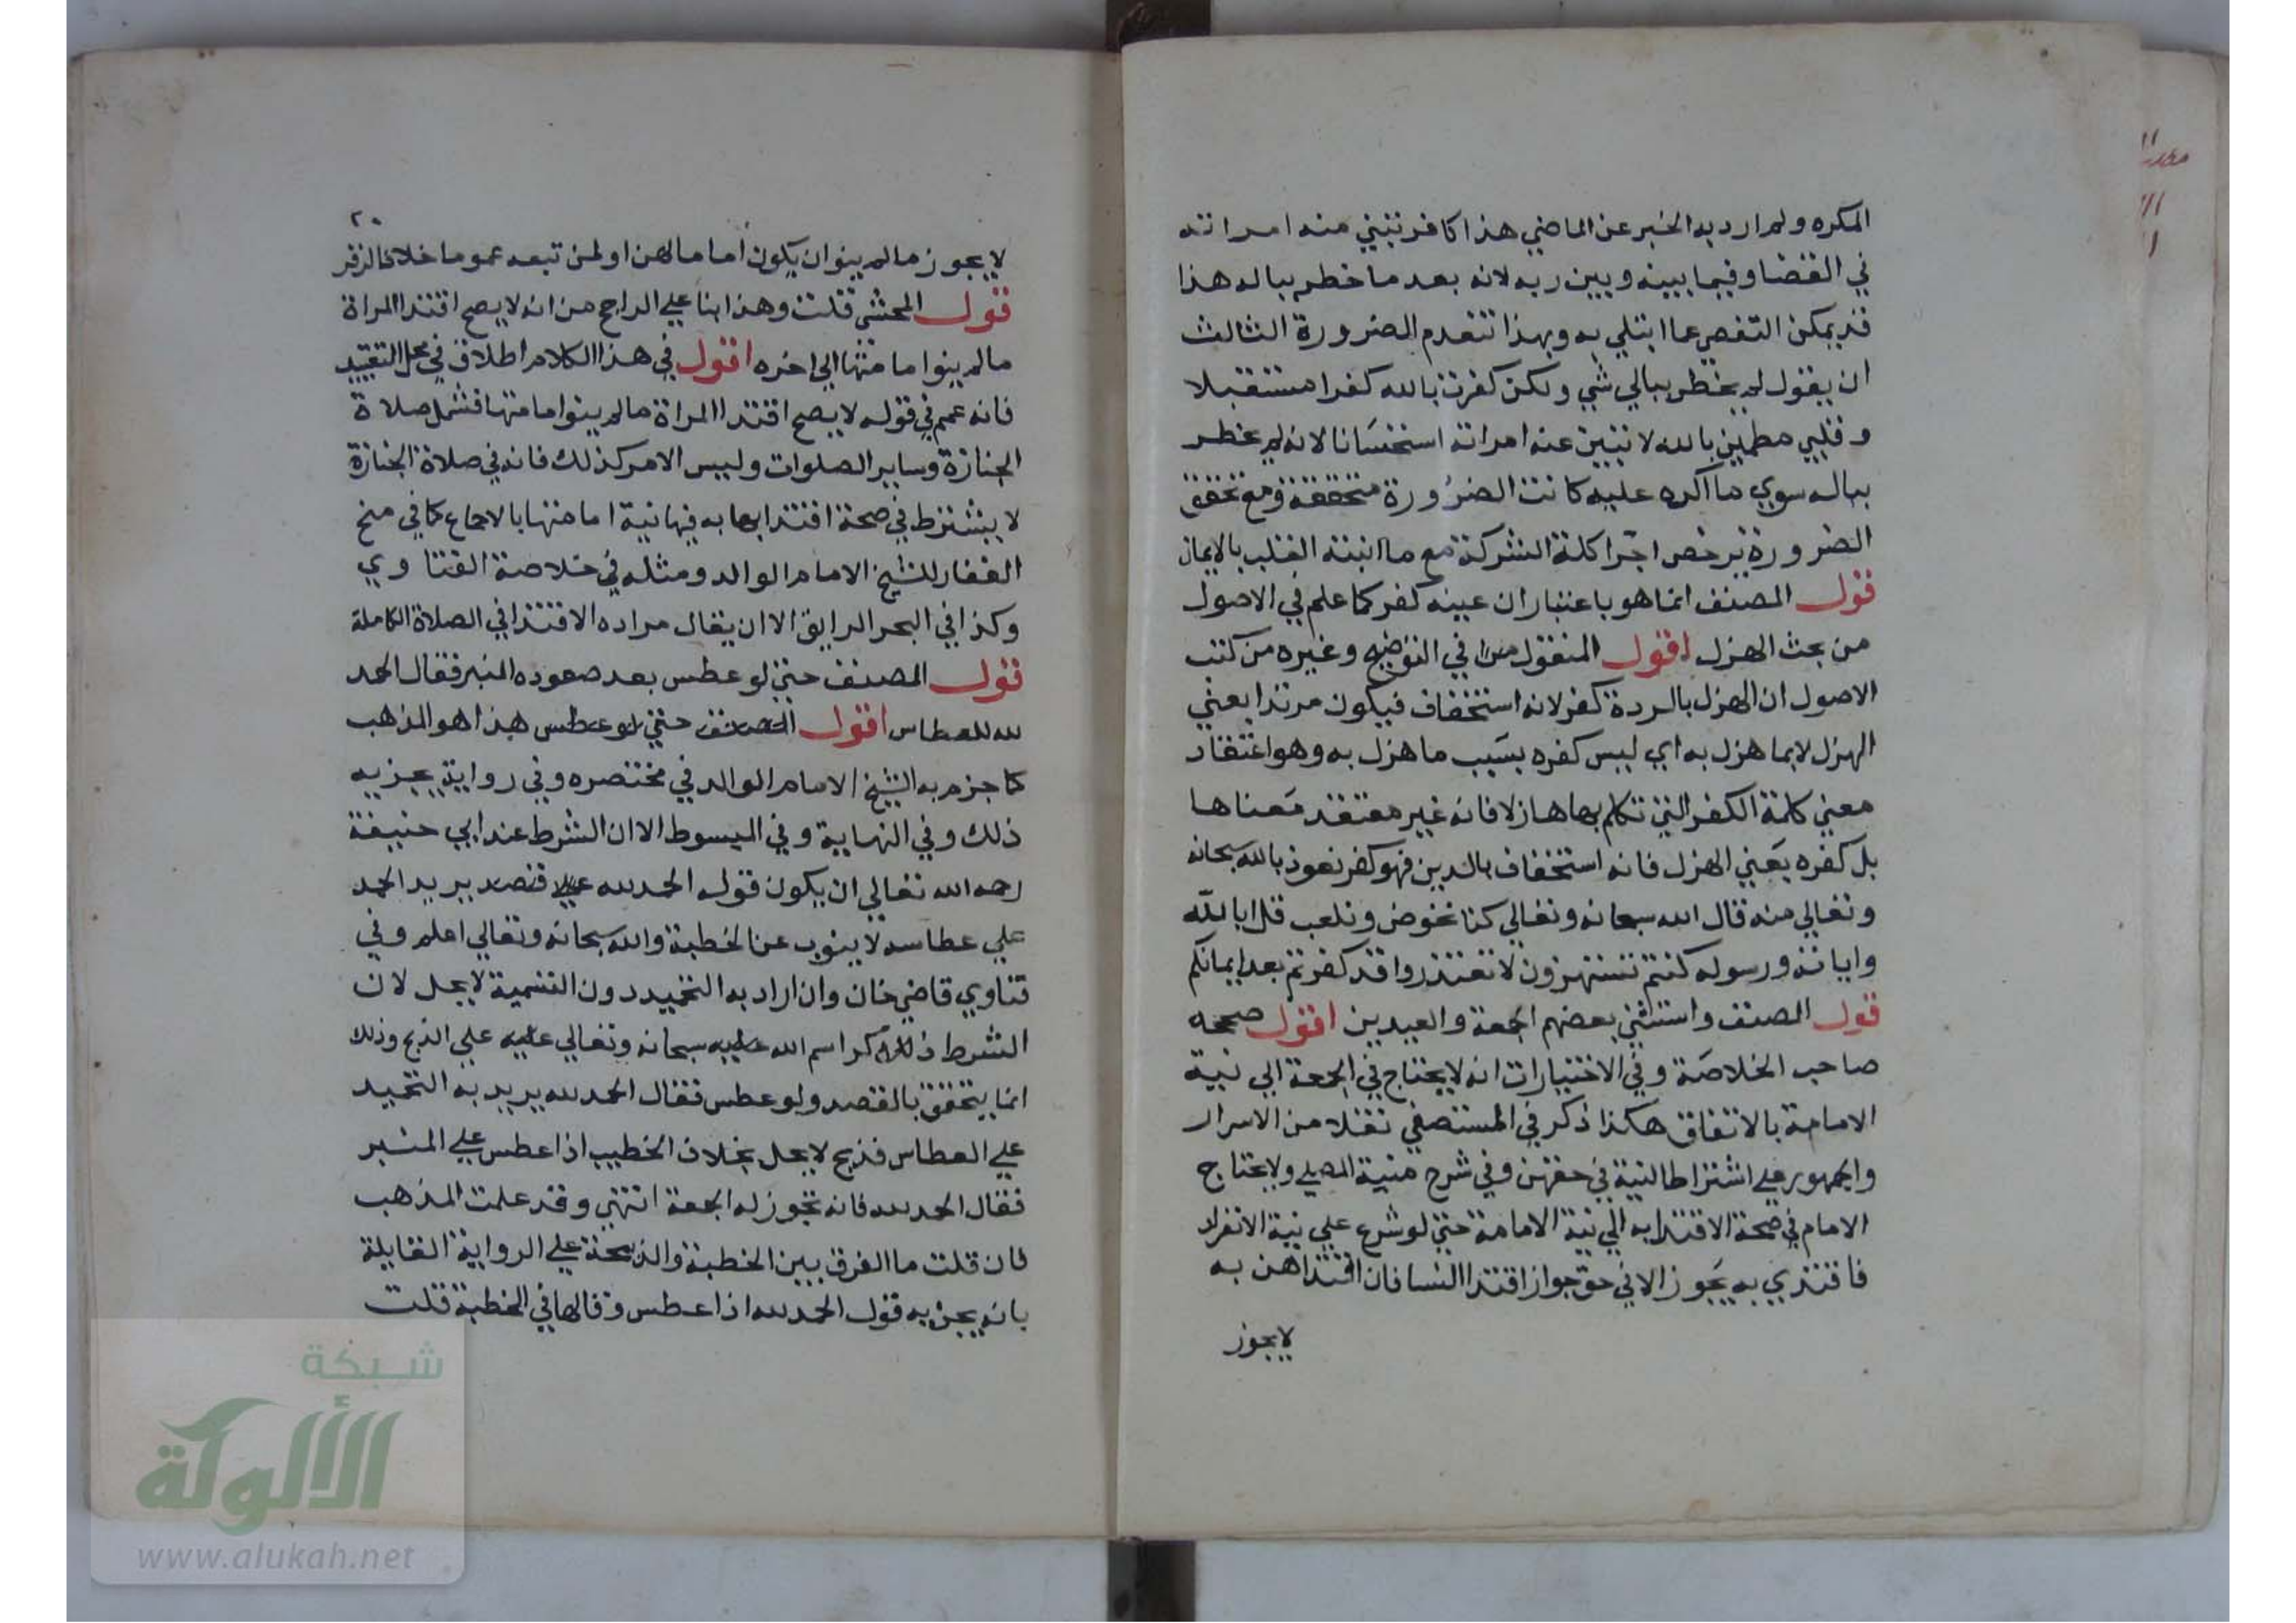 المكره ولم ارد به الخبر عن الماضي هذا كافر تبيني منه امراته
في القضا وفيما بينه وبين ربه لانه بعد ما خطر بباله هذا
قد يمكن التفصي عما ابتلي به وبهذا تنعدم الضرورة الثالث
ان يقول لم يخطر ببالي شي ولكن كفرت بالله كفرا مستقبلا
وقلبي مطمين بالله لا تبين عنه امراته استحسانا لانه لم يخطر
بباله سوي ما اكره عليه كانت الضرورة متحققة ومع تحقق
الضرورة يرخص اجرا كلمة الشركة مع ما اثبته القلب بالايمان
قول المصنف انما هو باعتبار ان عينه كفر كما علم في الاصول
من بحث الهزل اقول المنقول في التوضيح وغيره من كتب
الاصول ان الهزل بالردة كفر لانه استخفاف فيكون مرتدا بعني
الهزل لا بما هزل به اي ليس كفره بسبب ما هزل به وهو اعتقاد
معني كلمة الكفر التي تكلم بها هازلا فانه غير معتقد معناها
بل كفره بعني الهزل فانه استخفاف بالدين فهو كفر نعوذ بالله سبحانه
وتعالي منه قال الله سبحانه وتعالي كنا نخوض ونلعب قل ابالله
واياته ورسوله كنتم تستهزون لا تعتذروا قد كفرتم بعد ايمانكم
قول المصنف واستثني بعضهم الجمعة والعيدين اقول صححه
صاحب الخلاصة وفي الاختيارات انه لا يحتاج في الجمعة الي نية
الامامة بالاتفاق هكذا ذكر في المستصفي نقلا من الاسرار
والجمهور علي اشتراط النية في حقهن وفي شرح منية المصلي ولا يحتاج
الامام في صحة الاقتدا به الي نية الامامة حتي لو شرع علي نية الانفراد
فاقتدي به يجوز الا في حق جواز اقتدا النسا فان اقتداهن به
لا يجوز
٢٠
لا يجوز ما لم ينوا ان يكون اماما لهن او لمن تبعه عموما خلافا لزفر
قول المحشي قلت وهذا بنا علي الراجح من انه لا يصح اقتدا المراة
ما لم ينوا مامتها الي اخره اقول في هذا الكلام اطلاق في محل التقييد
فانه عمم في قوله لا يصح اقتدا المراة ما لم ينوا مامتها فشمل صلاة
الجنازة وساير الصلوات وليس الامر كذلك فانه في صلاة الجنازة
لا يشترط في صحة اقتدايها به فيها نية امامتها بالاجماع كما في منح
الغفار للشيخ الامام الوالد ومثله في خلاصة الفتاوي
وكذا في البحر الرايق الا ان يقال مراده الاقتدا في الصلاة الكاملة
قول المصنف حتي لو عطس بعد صعوده المنبر فقال الحمد
لله للعطاس اقول المصنف حتي لو عطس هذا هو المذهب
كما جزم به الشيخ الامام الوالد في مختصره وفي رواية يجزيه
ذلك وفي النهاية وفي المبسوط الا ان الشرط عند ابي حنيفة
رحمه الله تعالي ان يكون قوله الحمد لله علي قصد يريد الحمد
علي عطاسه لا ينوب عن الخطبة والله سبحانه وتعالي اعلم وفي
فتاوي قاضي خان وان اراد به التحميد دون التسمية لا يحل لان
الشرط ذكر اسم الله عليه سبحانه وتعالي عليه علي الذبح وذلك
انما يتحقق بالقصد ولو عطس فقال الحمد لله يريد به التحميد
علي العطاس فذبح لا يحل بخلاف الخطيب اذا عطس علي المنبر
فقال الحمد لله فانه تجوز له الجمعة انتهي وقد علمت المذهب
فان قلت ما الفرق بين الخطبة والذبيحة علي الرواية القايلة
بانه يجزيه قول الحمد لله اذا عطس وقالها في الخطبة قلت
شبكة
الألوكة
www.alukah.net